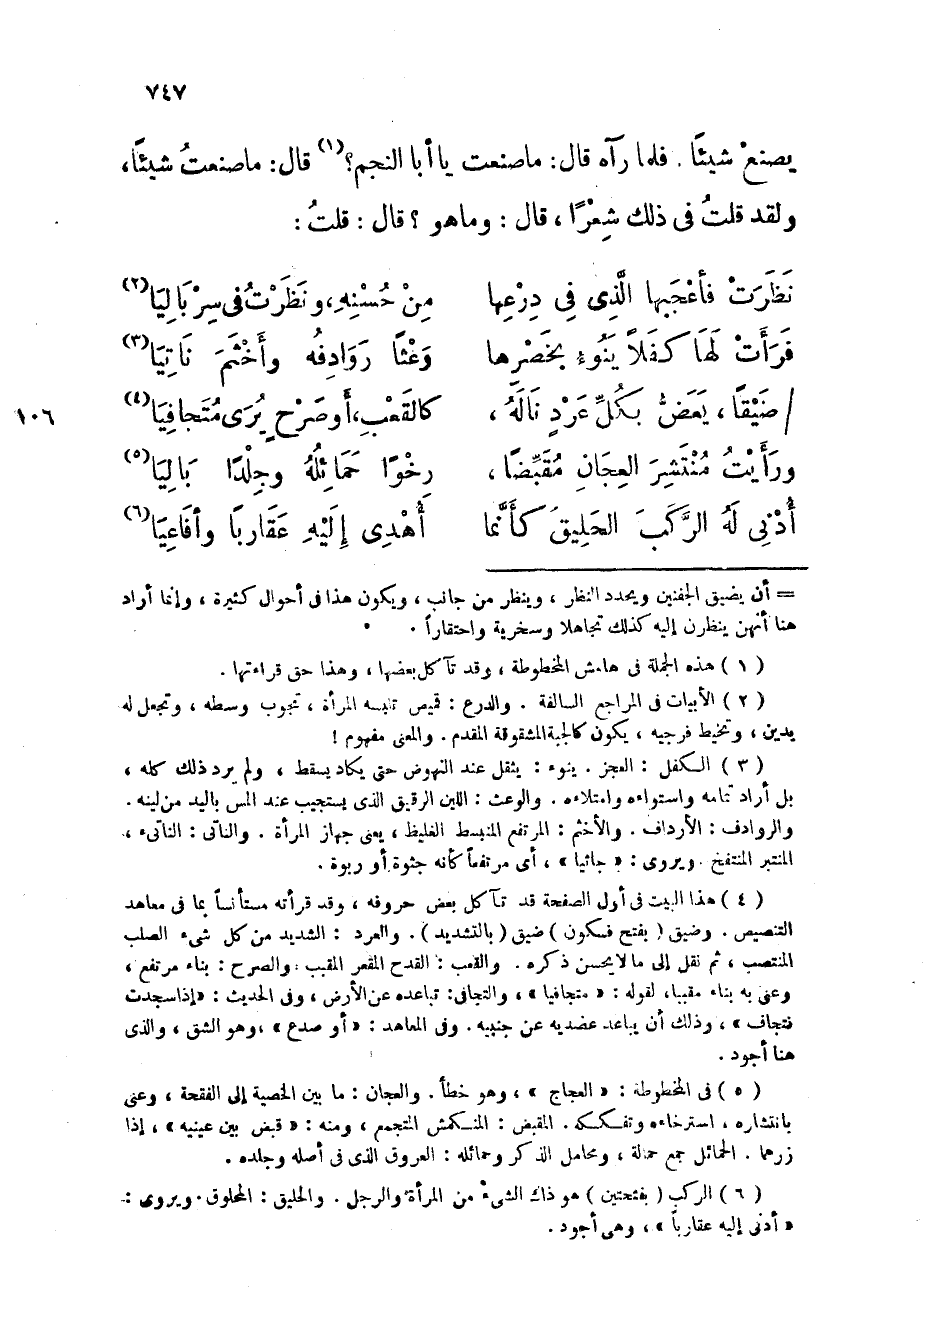 ٧٤٧
يصنعْ شيئًا . فلما رآه قال : ماصنعت يا أبا النجم ؟(١) قال : ماصنعتُ شيئًا ،
ولقد قلتُ فى ذلك شِعْرًا ، قال : وماهو ؟ قال : قلتُ :
نَظَرَتْ فأَعْجَبها الَّذِى فِى دِرْعِها مِنْ حُسْنِهِ، ونَظَرْتُ فى سِرْبَالِيَا(٢)
فَرَأَتْ لَهَا كَفَلاً يَنُوءِ بخَصْرِها وَعْثًا رَوَادِفُه وأَخْثَمَ نَاتِيَا(٣)
/ ضَيْقًا ، يَعَضُّ بكُلِّ عَرْدٍ نَالَهُ ، كالقَعْبِ، أَو صَرْحٍ يُرَى مُتَجافِيَا(٤)
١٠٦
ورَأَيْتُ مُنْتَشِرَ العِجَانِ مُقَبِّضًا ، رِخْوًا حَمَائِلُهُ وجِلْدًا بَالِيَا(٥)
أُدْنِى لَهُ الرَّكَبَ الحَلِيقَ كَأَنَّمَا أُهْدِى إِلَيْهِ عَقَاربًا وأَفَاعِيَا(٦)
= أن يضيق الجفنين ويحدد النظر ، وينظر من جانب ، ويكون هذا فى أحوال كثيرة ، وإنما أراد
هنا أنهن ينظرن إليه كذلك تجاهلا وسخرية واحتقاراً .
( ١ ) هذه الجملة فى هامش المخطوطة ، وقد تآكل بعضها ، وهذا حق قراءتها .
( ٢ ) الأبيات فى المراجع السالفة . والدرع : قميص تلبسه المرأة ، تجوب وسطه ، وتجعل له
يدين ، وتخيط فرجيه ، يكون كالجبة المشقوقة المقدم . والمعنى مفهوم !
( ٣ ) الكفل : العجز . ينوء : يثقل عند النهوض حتى يكاد يسقط ، ولم يرد ذلك كله ،
بل أراد تمامه واستواءه وامتلاءه . والوعث : اللين الرقيق الذى يستجيب عند المس باليد من لينه .
والروادف : الأرداف . والأخثم : المرتفع المنبسط الغليظ ، يعنى جهاز المرأة . والناتى : الناتىء ،
المنتبر المنتفخ . ويروى : « جاثيا » ، أى مرتفعاً كأنه جثوة أو ربوة .
( ٤ ) هذا البيت فى أول الصفحة قد تآكل بعض حروفه ، وقد قرأته مستأنساً بما فى معاهد
التنصيص . وضيق ( بفتح فسكون ) ضيق ( بالتشديد ) . والعرد : الشديد من كل شىء الصلب
المنتصب ، ثم نقل إلى ما لا يحسن ذكره . والقعب : القدح المقعر المقبب . والصرح : بناء مرتفع ،
وعنى به بناء مقببا، لقوله : « متجافيا » ، والتجافى : تباعده عن الأرض ، وفى الحديث : « إذا سجدت
فتجاف » ، وذلك أن يباعد عضديه عن جنبيه . وفى المعاهد : « أو صدع » ، وهو الشق ، والذى
هنا أجود .
( ٥ ) فى المخطوطة : « العجاج » ، وهو خطأ . والعجان : ما بين الخصية إلى الفقحة ، وعنى
بانتشاره ، استرخاءه وتفككه . المقبض : المنكمش المتجمع ، ومنه : « قبض بين عينيه » ، إذا
زرهما . الحمائل جمع حمالة ، ومحامل الذكر وحمائله : العروق الذى فى أصله وجلده .
( ٦ ) الركب ( بفتحتين ) هو ذاك الشىء من المرأة والرجل . والحليق : المحلوق . ويروى :
« أدنى إليه عقارباً » ، وهى أجود .